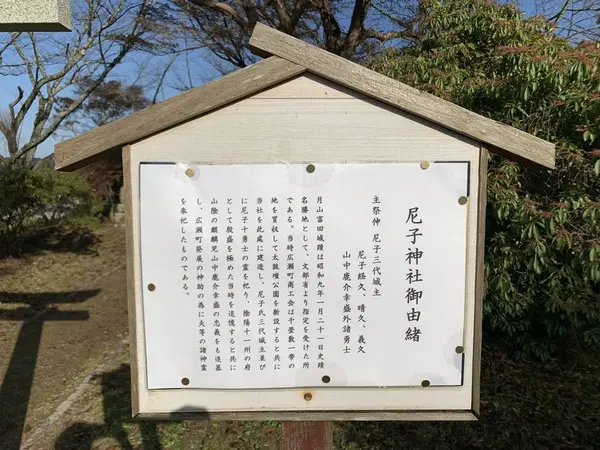 尼子神社御由緒
主祭神 尼子三代城主
尼子経久、晴久、義久
山中鹿介幸盛外諸勇士
月山富田城蹟は昭和九年一月二十一日史蹟
名勝地として、文部省より指定を受けた所
である。当時広瀬町商工会は千畳敷一帯の
地を買収して太鼓壇公園を新設すると共に
当社を此処に建造し、尼子氏三代城主並び
に尼子十勇士の霊を祀り、陰陽十一州の府
として殷盛を極めた当時を追憶すると共に
山陰の麒麟児山中鹿介幸盛の忠義をも追慕
し、広瀬町発展の神助の為に夫等の諸神霊
を奉祀したものである。